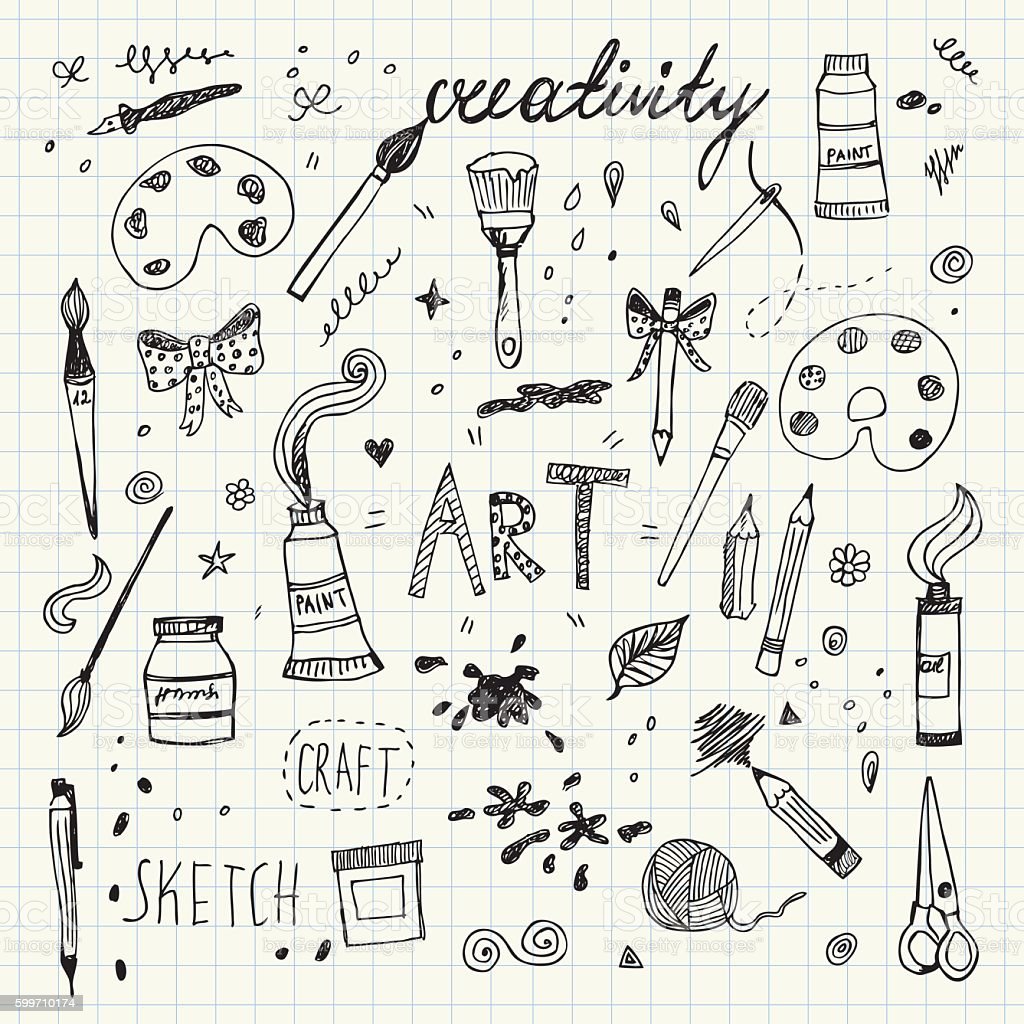 creativity
PAINT
12
ART
PAINT
oil
CRAFT
SKETCH
iStock
by Getty Images™
599710174